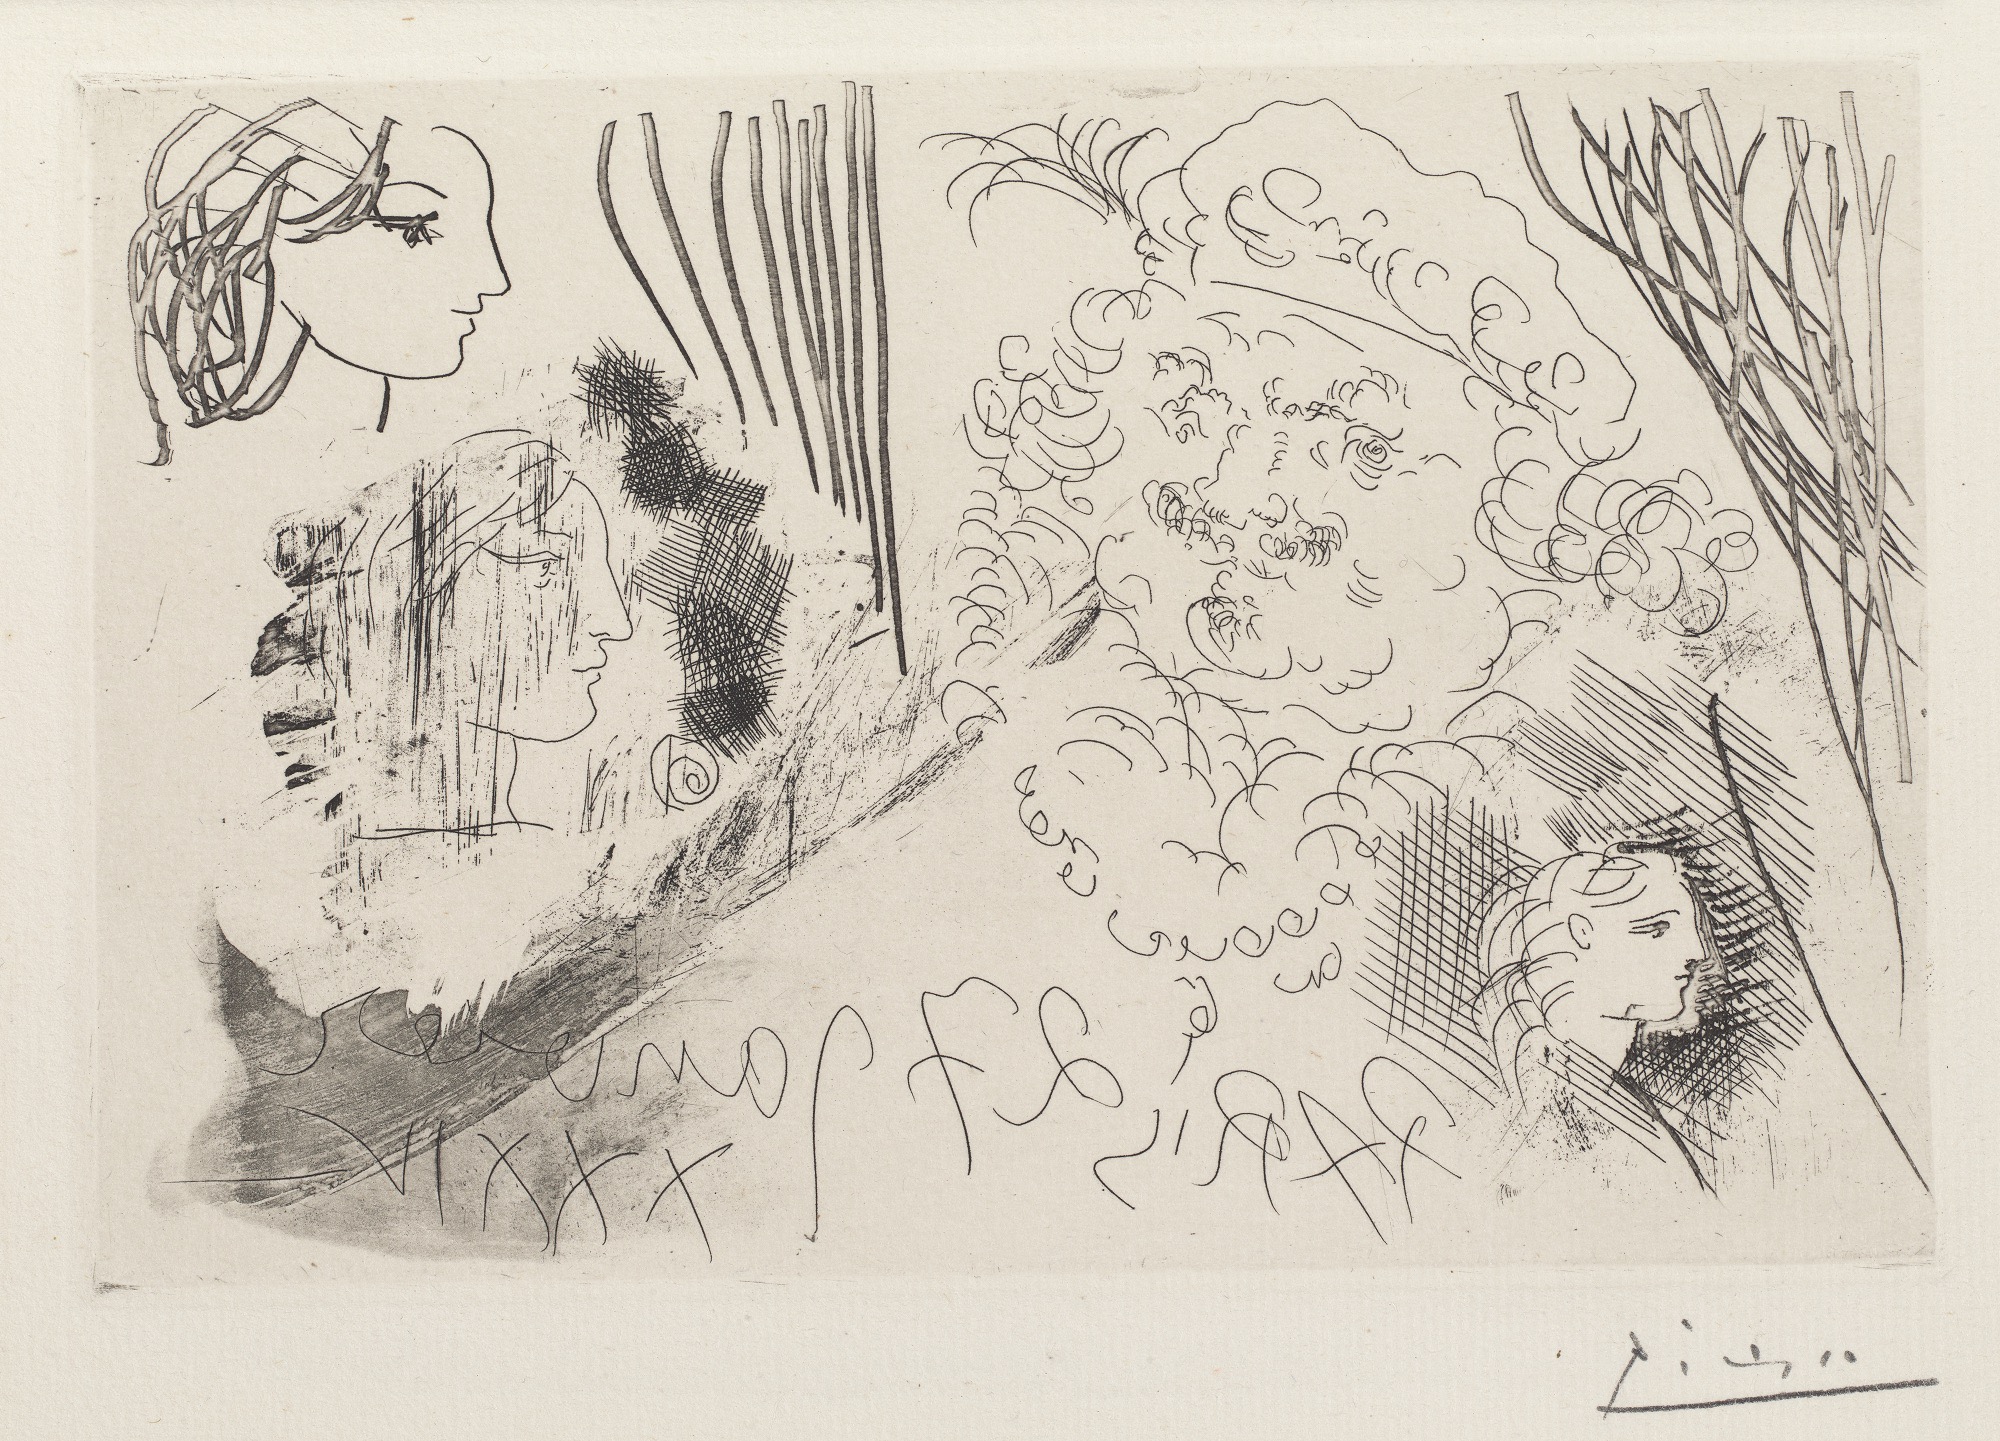 PARiS 27 Janvier
XXXIV
Picasso